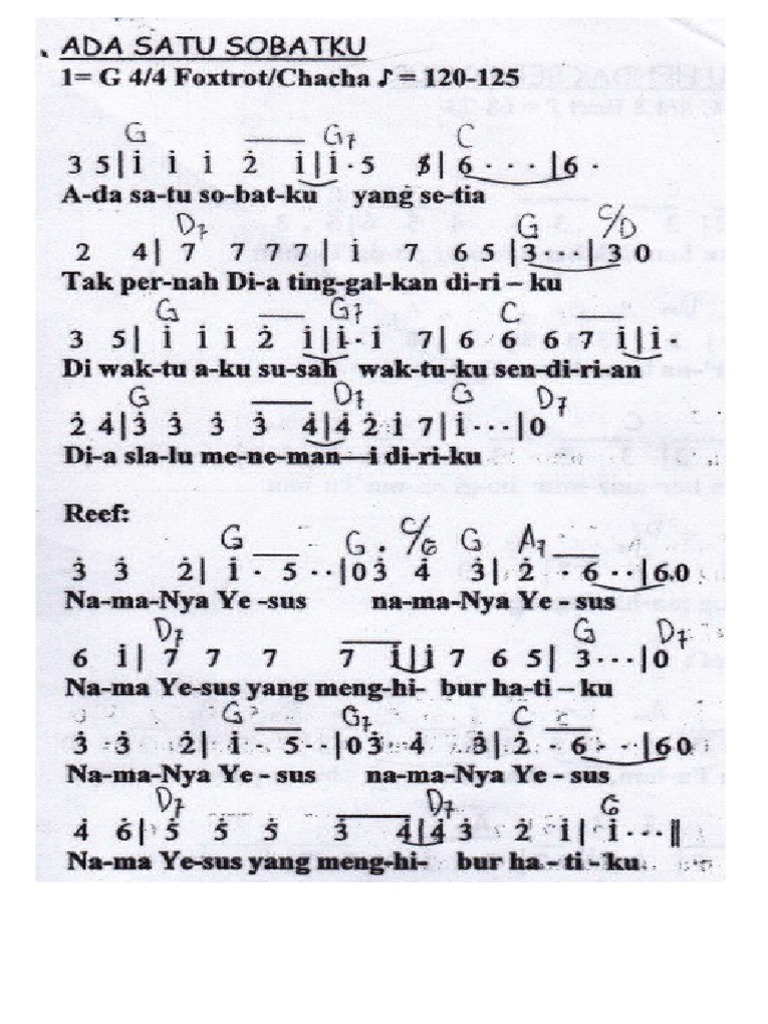 ADA SATU SOBATKU
1= G 4/4 Foxtrot/Chacha ♪ = 120-125
G G7 C
3 5| i i i 2̇ i| i · 5 5| 6 · · · |6 ·
A-da sa-tu so-bat-ku yang se-tia
D7 G C/D
2 4| 7 7 7 7 7| i 7 6 5 |3 · · ·|3 0
Tak per-nah Di-a ting-gal-kan di-ri – ku
G G7 C
3 5| i i i 2̇ i| i · i 7| 6 6 6 6 7 i| i ·
Di wak-tu a-ku su-sah wak-tu-ku sen-di-ri-an
G D7 G D7
2̇ 4̇|3̇ 3̇ 3̇ 3̇ 4̇|4̇ 2̇ i 7| i · · · |0
Di-a sla-lu me-ne-man- i di-ri-ku
Reef:
G G . C/G G A7
3̇ 3̇ 2̇| i · 5 · · |0 3̇ 4̇ 3̇| 2̇ · 6 · · |6.0
Na-ma-Nya Ye -sus na-ma-Nya Ye - sus
D7 G D7
6 i| 7 7 7 7 i| i 7 6 5| 3 · · · |0
Na-ma Ye-sus yang meng-hi- bur ha-ti – ku
G G7 C
3̇ 3̇ 2̇| i · 5 · |0 3̇ 4̇ 3̇| 2̇ 6 · · |6 0
Na-ma-Nya Ye - sus na-ma-Nya Ye - sus
D7 D7 G
4̇ 6̇| 5̇ 5̇ 5̇ 3̇ 4̇|4̇ 3̇ 2̇ i| i · · · ||
Na-ma Ye-sus yang meng-hi- bur ha - ti - ku